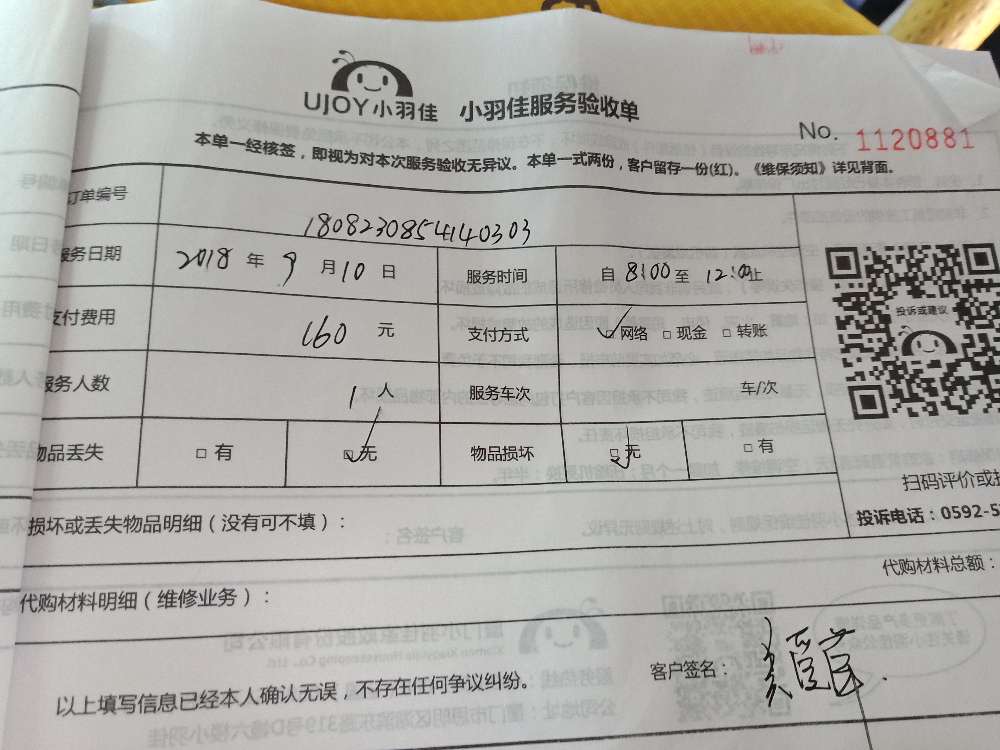 UJOY小羽佳 小羽佳服务验收单
No. 1120881
本单一经核签，即视为对本次服务验收无异议。本单一式两份，客户留存一份(红)。《维保须知》详见背面。
订单编号 1808230854140303
服务日期 2018 年 9 月 10 日 服务时间 自 8:00 至 12:00 止
支付费用 160 元 支付方式 ☑网络 □现金 □转账
服务人数 1 人 服务车次 车/次
物品丢失 □有 ☑无 物品损坏 ☑无 □有
投诉或建议
扫码评价或
投诉电话：0592-5
损坏或丢失物品明细（没有可不填）：
代购材料明细（维修业务）：
代购材料总额：
以上填写信息已经本人确认无误，不存在任何争议纠纷。
客户签名：